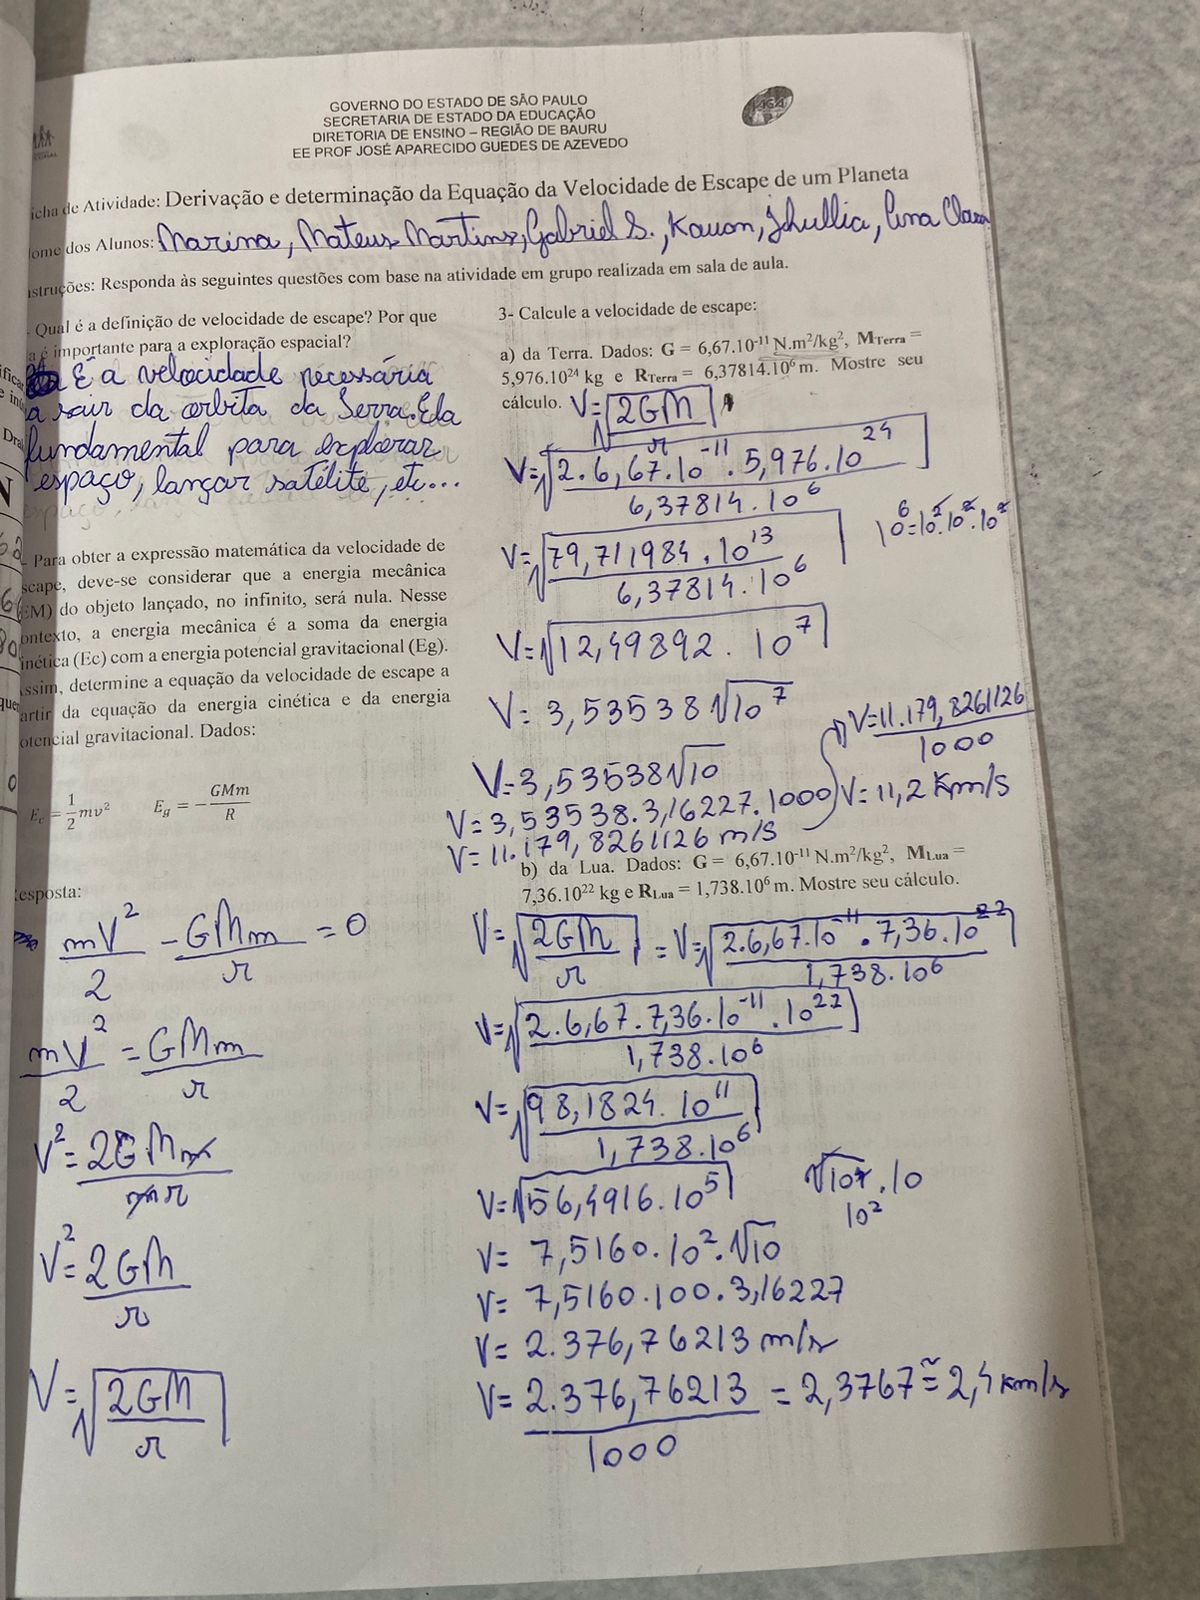 GOVERNO DO ESTADO DE SÃO PAULO
SECRETARIA DE ESTADO DA EDUCAÇÃO
DIRETORIA DE ENSINO – REGIÃO DE BAURU
EE PROF JOSÉ APARECIDO GUEDES DE AZEVEDO
icha de Atividade: Derivação e determinação da Equação da Velocidade de Escape de um Planeta
ome dos Alunos: Marina, Mateus Martins, Gabriel S., Kauan, Jhullia, Ana Clara
struções: Responda às seguintes questões com base na atividade em grupo realizada em sala de aula.
- Qual é a definição de velocidade de escape? Por que
a é importante para a exploração espacial?
É a velocidade necessária
a sair da orbita da Terra. Ela
fundamental para explorar
espaço, lançar satélite, etc...
Para obter a expressão matemática da velocidade de
scape, deve-se considerar que a energia mecânica
EM) do objeto lançado, no infinito, será nula. Nesse
ontexto, a energia mecânica é a soma da energia
inética (Ec) com a energia potencial gravitacional (Eg).
ssim, determine a equação da velocidade de escape a
artir da equação da energia cinética e da energia
otencial gravitacional. Dados:
E_c = 1/2 mv² E_g = − GMm/R
esposta:
mV²/2 − GMm/r = 0
mV²/2 = GMm/r
V² = 2GMm/mr
V² = 2GM/r
V = √(2GM/r)
3- Calcule a velocidade de escape:
a) da Terra. Dados: G = 6,67.10⁻¹¹ N.m²/kg², M_Terra =
5,976.10²⁴ kg e R_Terra = 6,37814.10⁶ m. Mostre seu
cálculo. V=√(2GM/r)
V=√(2.6,67.10⁻¹¹.5,976.10²⁴/6,37814.10⁶)
V=√(79,711984.10¹³/6,37814.10⁶) 10⁶=10².10².10²
V=√(12,49892.10⁷)
V= 3,53538√10⁷
V=3,53538√10
V=3,53538.3,16227.1000
V=11.179,8261126 m/s
V=11.179,8261126/1000
V=11,2 Km/s
b) da Lua. Dados: G = 6,67.10⁻¹¹ N.m²/kg², M_Lua =
7,36.10²² kg e R_Lua = 1,738.10⁶ m. Mostre seu cálculo.
V=√(2GM/r) = V=√(2.6,67.10⁻¹¹.7,36.10²²/1,738.10⁶)
V=√(2.6,67.7,36.10⁻¹¹.10²²/1,738.10⁶)
V=√(98,1824.10¹¹/1,738.10⁶)
V=√(56,4916.10⁵) √10⁴.10
10²
V= 7,5160.10².√10
V= 7,5160.100.3,16227
V= 2.376,76213 m/s
V= 2.376,76213/1000 = 2,3767 ≅ 2,4 km/s